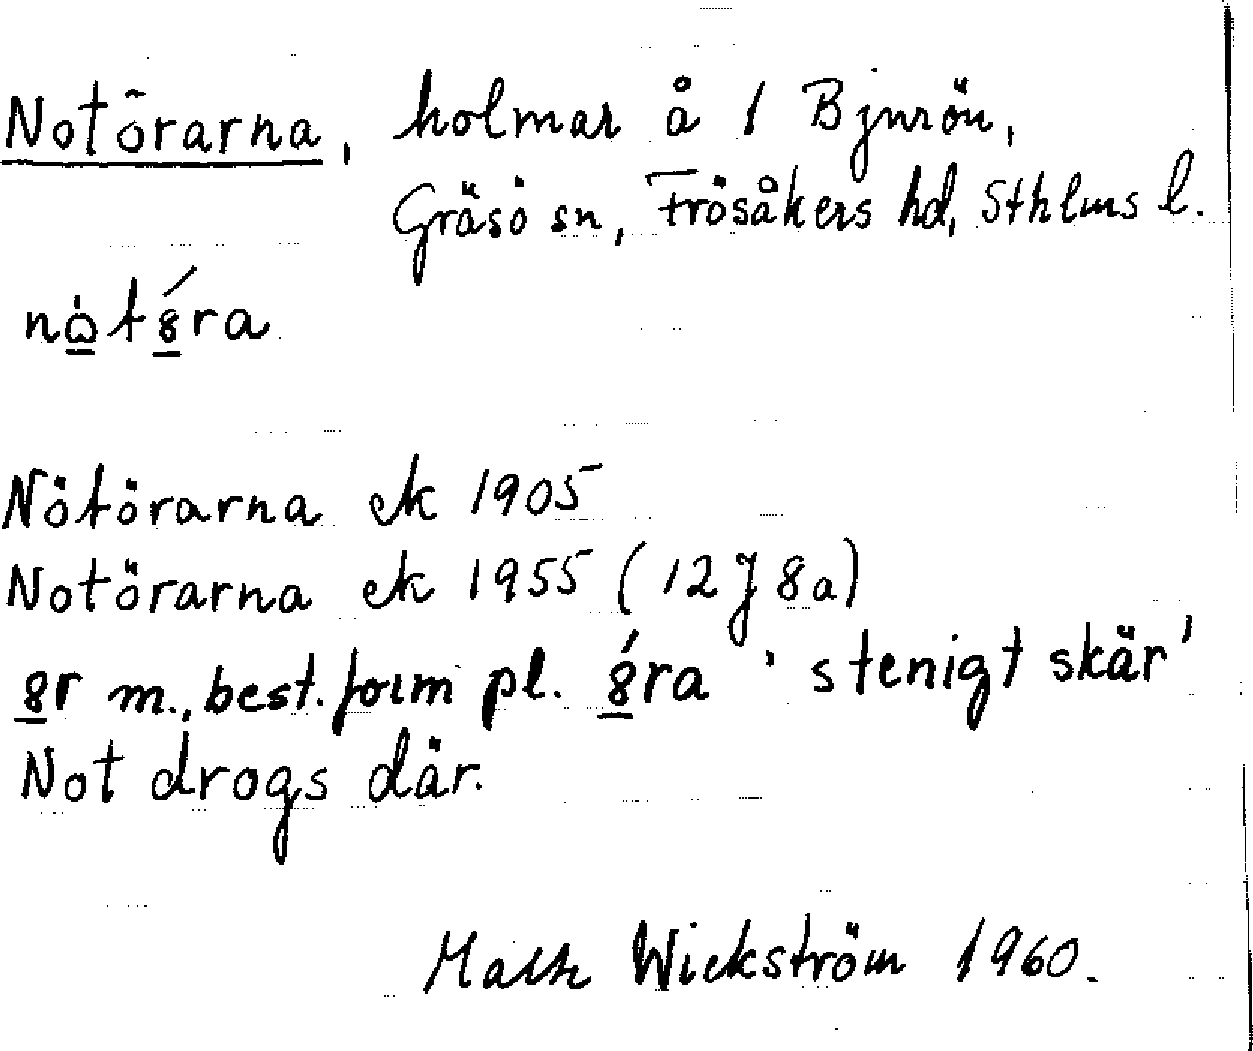 Notörarna, holmar å 1 Bjurön,
Gräsö sn, Frösåkers hd, Sthlms l.
Nötörarna ek 1905
Notörarna ek 1955 (12J 8a)
m., best. form pl. 'stenigt skär'
Not drogs där.
Wickström 1960.